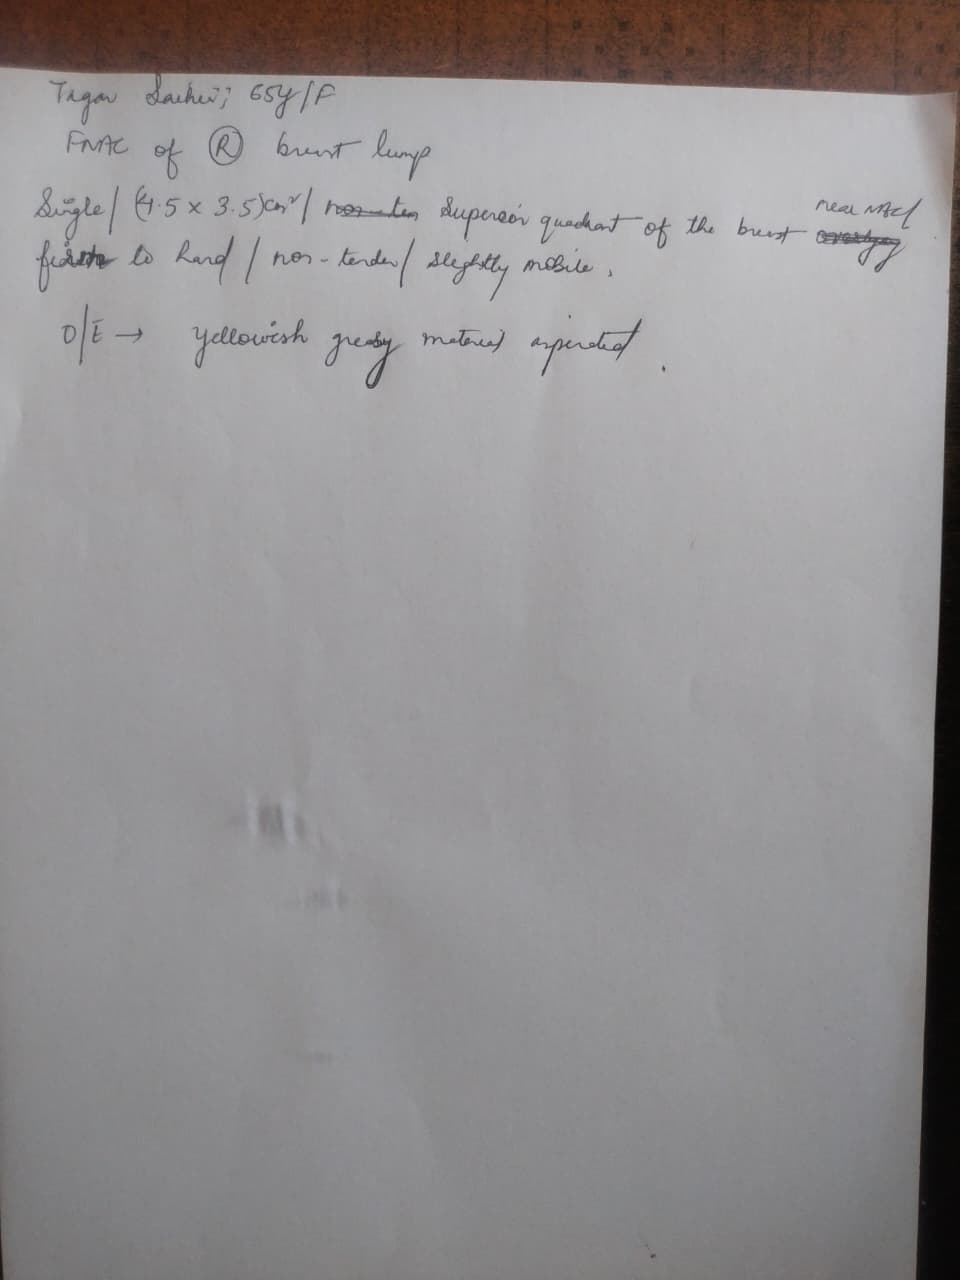 Tagar ; 65y/F
FNAC of (R) breast lump
Single / (4.5 x 3.5)cm² / non-ten Superior quadrant of the breast near NAC /
firm to hard / non-tender / slightly mobile.
O/E → yellowish greasy material aspirated.